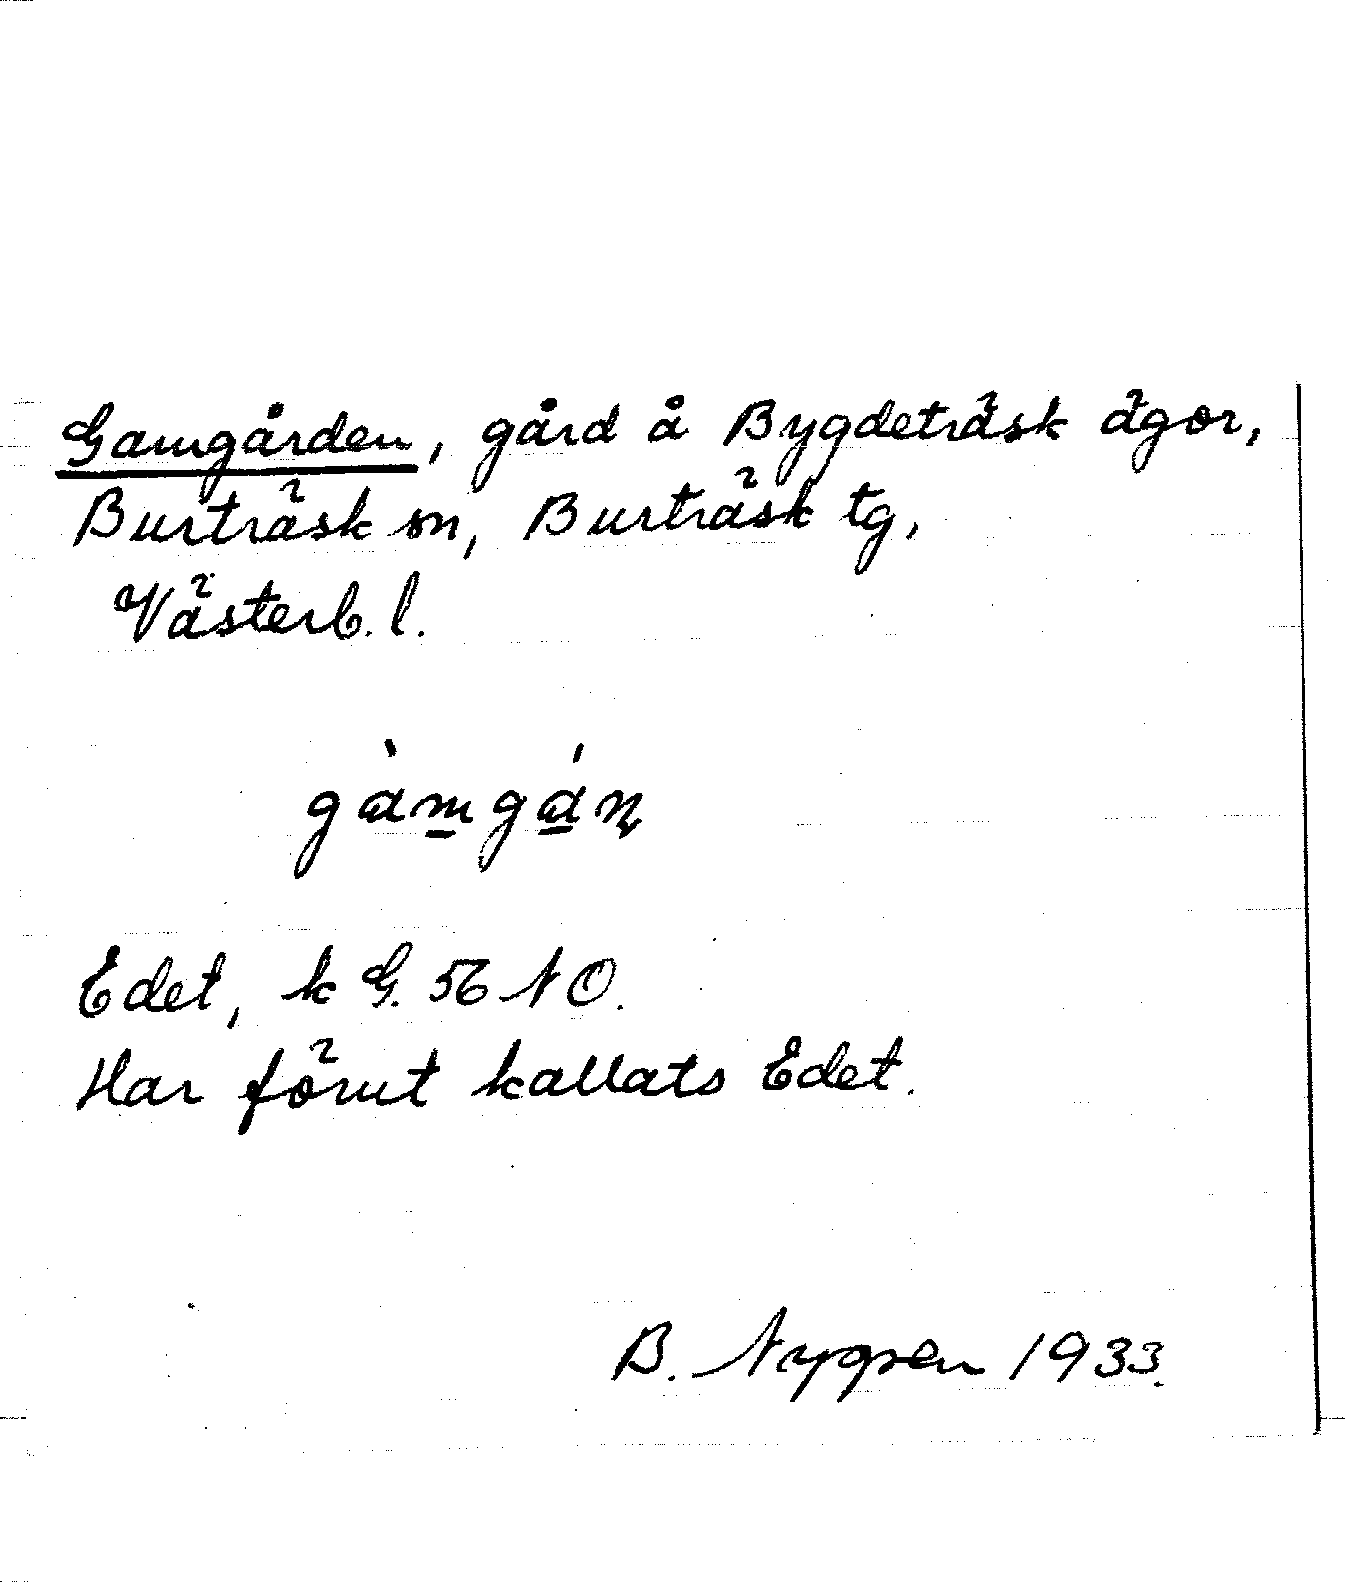 Gamgården, gård å Bygdeträsk ägor,
Burträsk sn, Burträsk tg,
Västerb. l.
gàm̲gá̲ɳ
Edet, k G. 56 NO.
Har förut kallats Edet.
B. Nygren 1933.